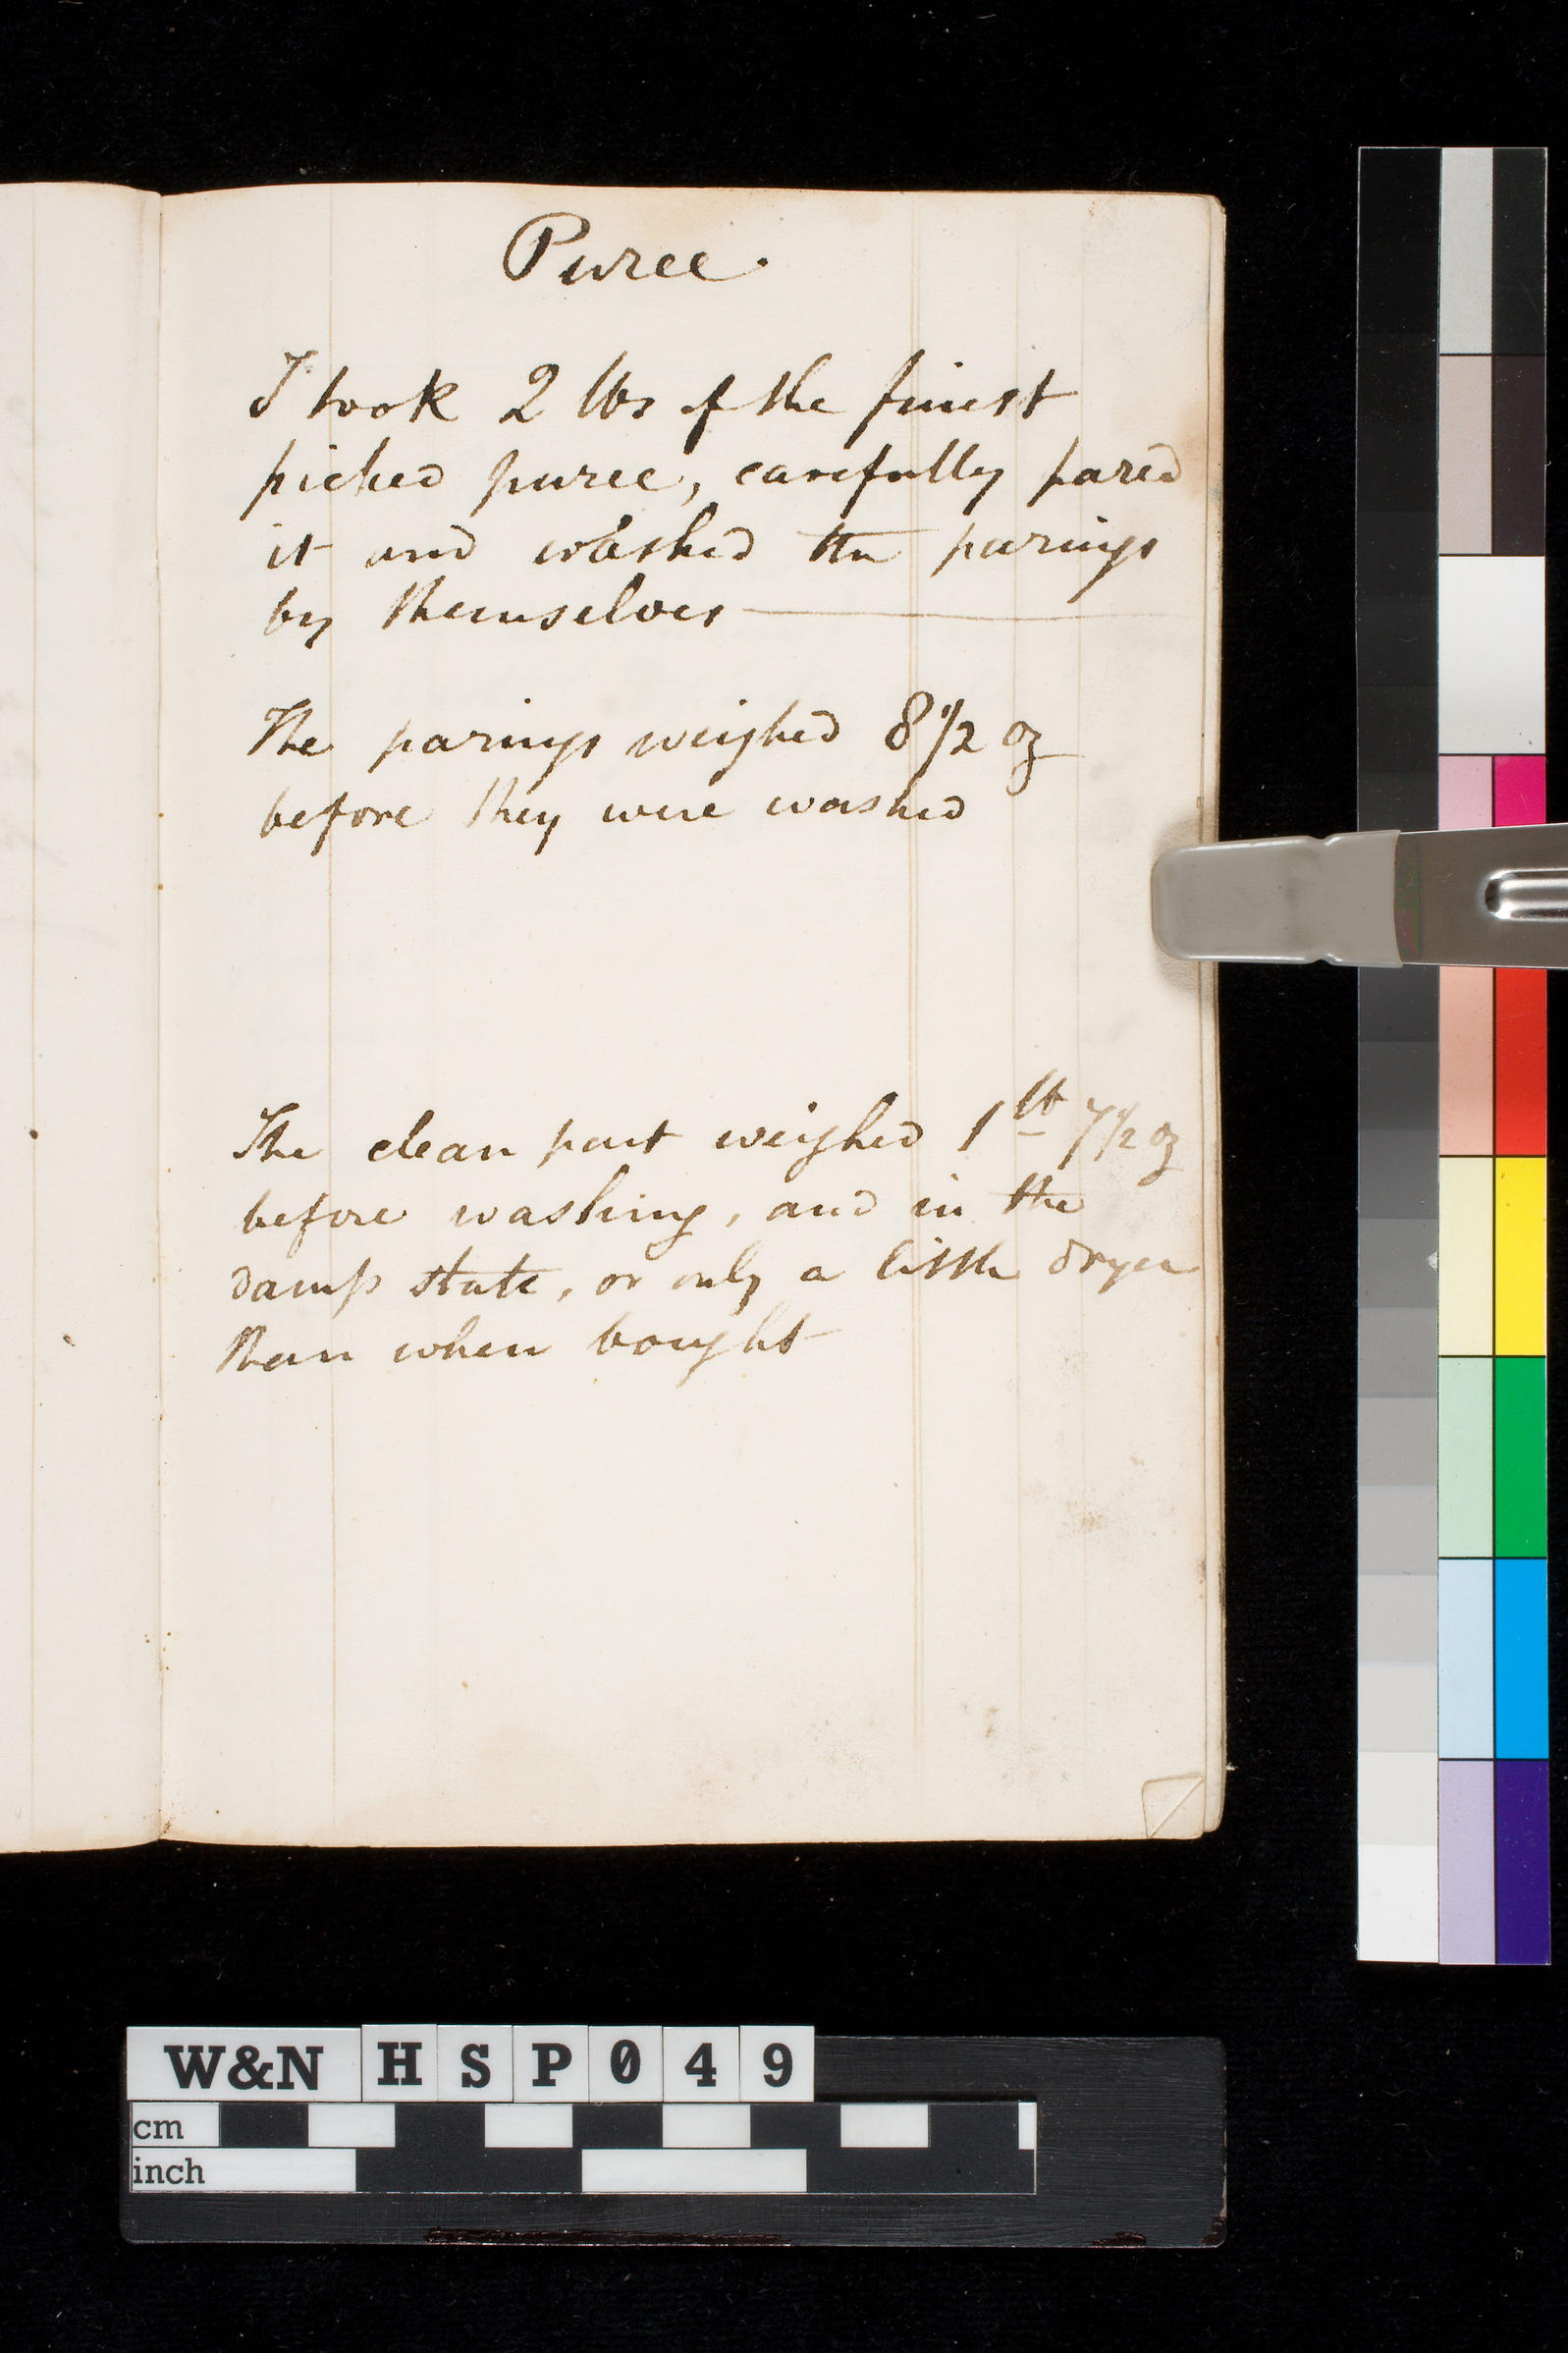 Puree.
I took 2 lbs of the finest
picked puree, carefully pared
it and washed the parings
by themselves
The parings weighed 8 1/2 oz
before they were washed
The clean part weighed 1 lb 7 1/2 oz
before washing, and in the
damp state, or only a little dryer
than when bought
W&N HSP049
cm
inch